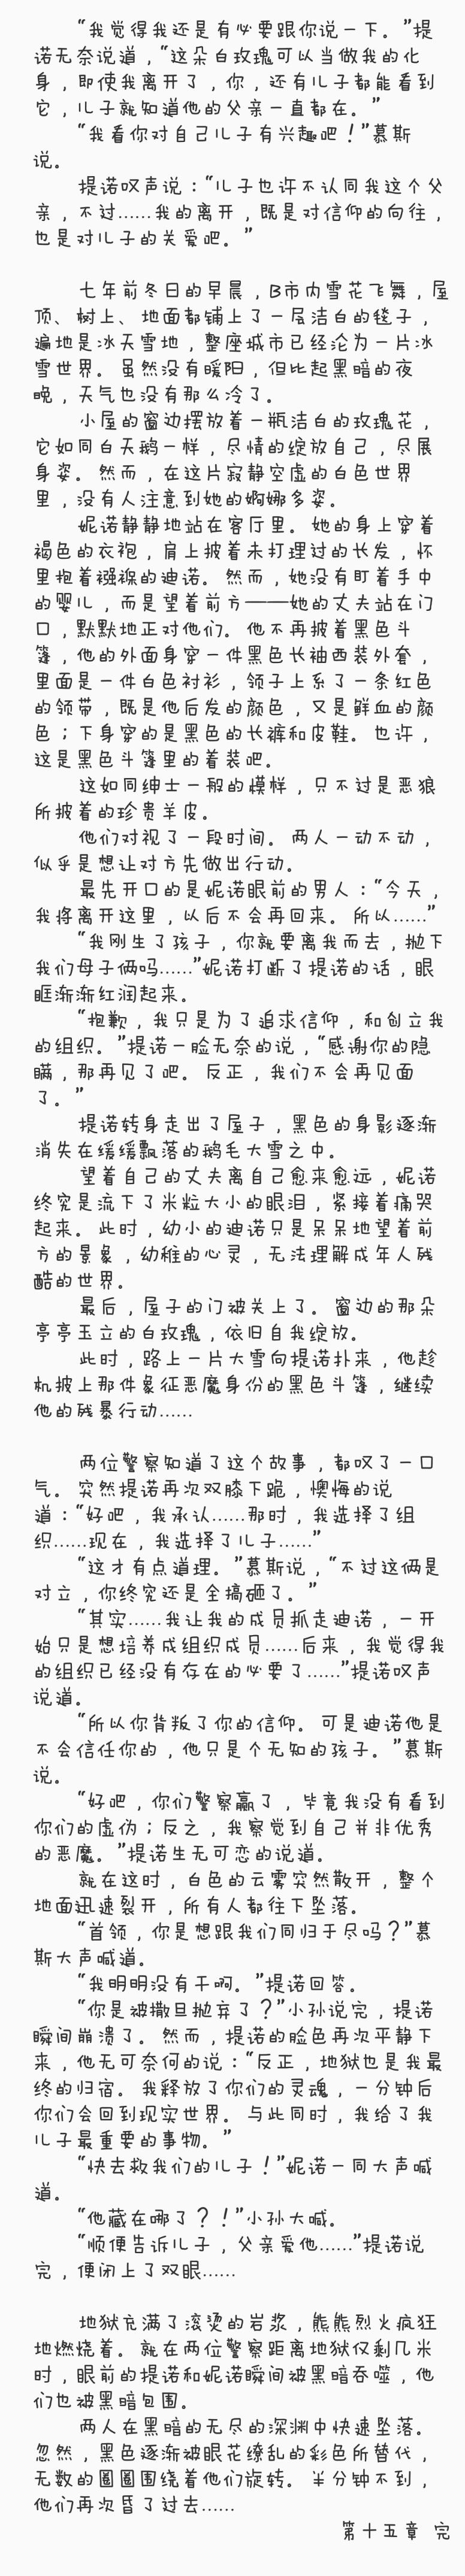 “我觉得我还是有必要跟你说一下。”提
诺无奈说道，“这朵白玫瑰可以当做我的化
身，即使我离开了，你，还有儿子都能看到
它，儿子就知道他的父亲一直都在。”
“我看你对自己儿子有兴趣吧！”慕斯
说。
提诺叹声说：“儿子也许不认同我这个父
亲，不过……我的离开，既是对信仰的向往，
也是对儿子的关爱吧。”
七年前冬日的早晨，B市内雪花飞舞，屋
顶、树上、地面都铺上了一层洁白的毯子，
遍地是冰天雪地，整座城市已经沦为一片冰
雪世界。虽然没有暖阳，但比起黑暗的夜
晚，天气也没有那么冷了。
小屋的窗边摆放着一瓶洁白的玫瑰花，
它如同白天鹅一样，尽情的绽放自己，尽展
身姿。然而，在这片寂静空虚的白色世界
里，没有人注意到她的婀娜多姿。
妮诺静静地站在客厅里。她的身上穿着
褐色的衣袍，肩上披着未打理过的长发，怀
里抱着襁褓的迪诺。然而，她没有盯着手中
的婴儿，而是望着前方——她的丈夫站在门
口，默默地正对他们。他不再披着黑色斗
篷，他的外面身穿一件黑色长袖西装外套，
里面是一件白色衬衫，领子上系了一条红色
的领带，既是他后发的颜色，又是鲜血的颜
色；下身穿的是黑色的长裤和皮鞋。也许，
这是黑色斗篷里的着装吧。
这如同绅士一般的模样，只不过是恶狼
所披着的珍贵羊皮。
他们对视了一段时间。两人一动不动，
似乎是想让对方先做出行动。
最先开口的是妮诺眼前的男人：“今天，
我将离开这里，以后不会再回来。所以……”
“我刚生了孩子，你就要离我而去，抛下
我们母子俩吗……”妮诺打断了提诺的话，眼
眶渐渐红润起来。
“抱歉，我只是为了追求信仰，和创立我
的组织。”提诺一脸无奈的说，“感谢你的隐
瞒，那再见了吧。反正，我们不会再见面
了。”
提诺转身走出了屋子，黑色的身影逐渐
消失在缓缓飘落的鹅毛大雪之中。
望着自己的丈夫离自己愈来愈远，妮诺
终究是流下了米粒大小的眼泪，紧接着痛哭
起来。此时，幼小的迪诺只是呆呆地望着前
方的景象，幼稚的心灵，无法理解成年人残
酷的世界。
最后，屋子的门被关上了。窗边的那朵
亭亭玉立的白玫瑰，依旧自我绽放。
此时，路上一片大雪向提诺扑来，他趁
机披上那件象征恶魔身份的黑色斗篷，继续
他的残暴行动……
两位警察知道了这个故事，都叹了一口
气。突然提诺再次双膝下跪，懊悔的说
道：“好吧，我承认……那时，我选择了组
织……现在，我选择了儿子……”
“这才有点道理。”慕斯说，“不过这俩是
对立，你终究还是全搞砸了。”
“其实……我让我的成员抓走迪诺，一开
始只是想培养成组织成员……后来，我觉得我
的组织已经没有存在的必要了……”提诺叹声
说道。
“所以你背叛了你的信仰。可是迪诺他是
不会信任你的，他只是个无知的孩子。”慕斯
说。
“好吧，你们警察赢了，毕竟我没有看到
你们的虚伪；反之，我察觉到自己并非优秀
的恶魔。”提诺生无可恋的说道。
就在这时，白色的云雾突然散开，整个
地面迅速裂开，所有人都往下坠落。
“首领，你是想跟我们同归于尽吗？”慕
斯大声喊道。
“我明明没有干啊。”提诺回答。
“你是被撒旦抛弃了？”小孙说完，提诺
瞬间崩溃了。然而，提诺的脸色再次平静下
来，他无可奈何的说：“反正，地狱也是我最
终的归宿。我释放了你们的灵魂，一分钟后
你们会回到现实世界。与此同时，我给了我
儿子最重要的事物。”
“快去救我们的儿子！”妮诺一同大声喊
道。
“他藏在哪了？！”小孙大喊。
“顺便告诉儿子，父亲爱他……”提诺说
完，便闭上了双眼……
地狱充满了滚烫的岩浆，熊熊烈火疯狂
地燃烧着。就在两位警察距离地狱仅剩几米
时，眼前的提诺和妮诺瞬间被黑暗吞噬，他
们也被黑暗包围。
两人在黑暗的无尽的深渊中快速坠落。
忽然，黑色逐渐被眼花缭乱的彩色所替代，
无数的圈圈围绕着他们旋转。半分钟不到，
他们再次昏了过去……
第十五章 完